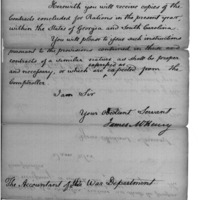 Herewith you will receive copies of the
Contracts concluded for Rations in the present year
within the States of Georgia and South Carolina.
You will please to give such instructions
pursuant to the provisions contained in these and
contracts of a similar nature as shall be proper
and necessary, or which are expected from the
Comptroller
I am Sir
Your Obedient Servant
James McHenry
The Accountant of the War Department